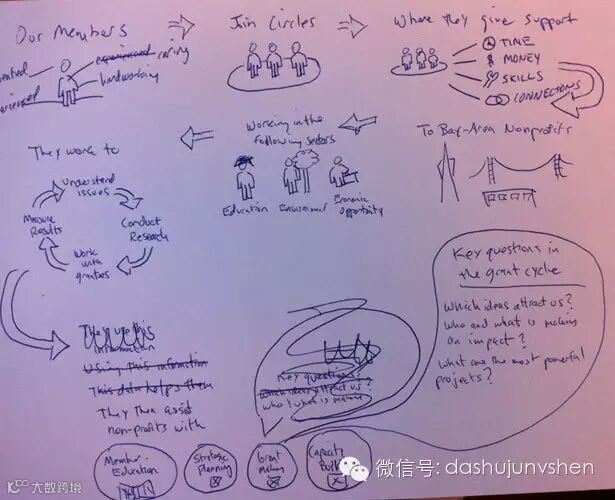 Our Members
Join Circles
Where they give support
experienced caring
hardworking
TIME
MONEY
SKILLS
CONNECTIONS
To Bay-Area Nonprofits
Working in the
following sectors
Education
Environmental
Economic
Opportunity
They work to
understand
issues
Conduct
Research
Work
with
grantees
Measure
Results
They use this
information
Using this information
This data helps them
They then assist
non-profits with
Member
Education
Strategic
Planning
Grant
making
Capacity
Build
Key questions?
Which ideas attract us?
who & what is making
Key questions in
the grant cycle
Which ideas attract us?
who and what is making
an impact?
What are the most powerful
projects?
微信号: dashujunvshen
大数跨境